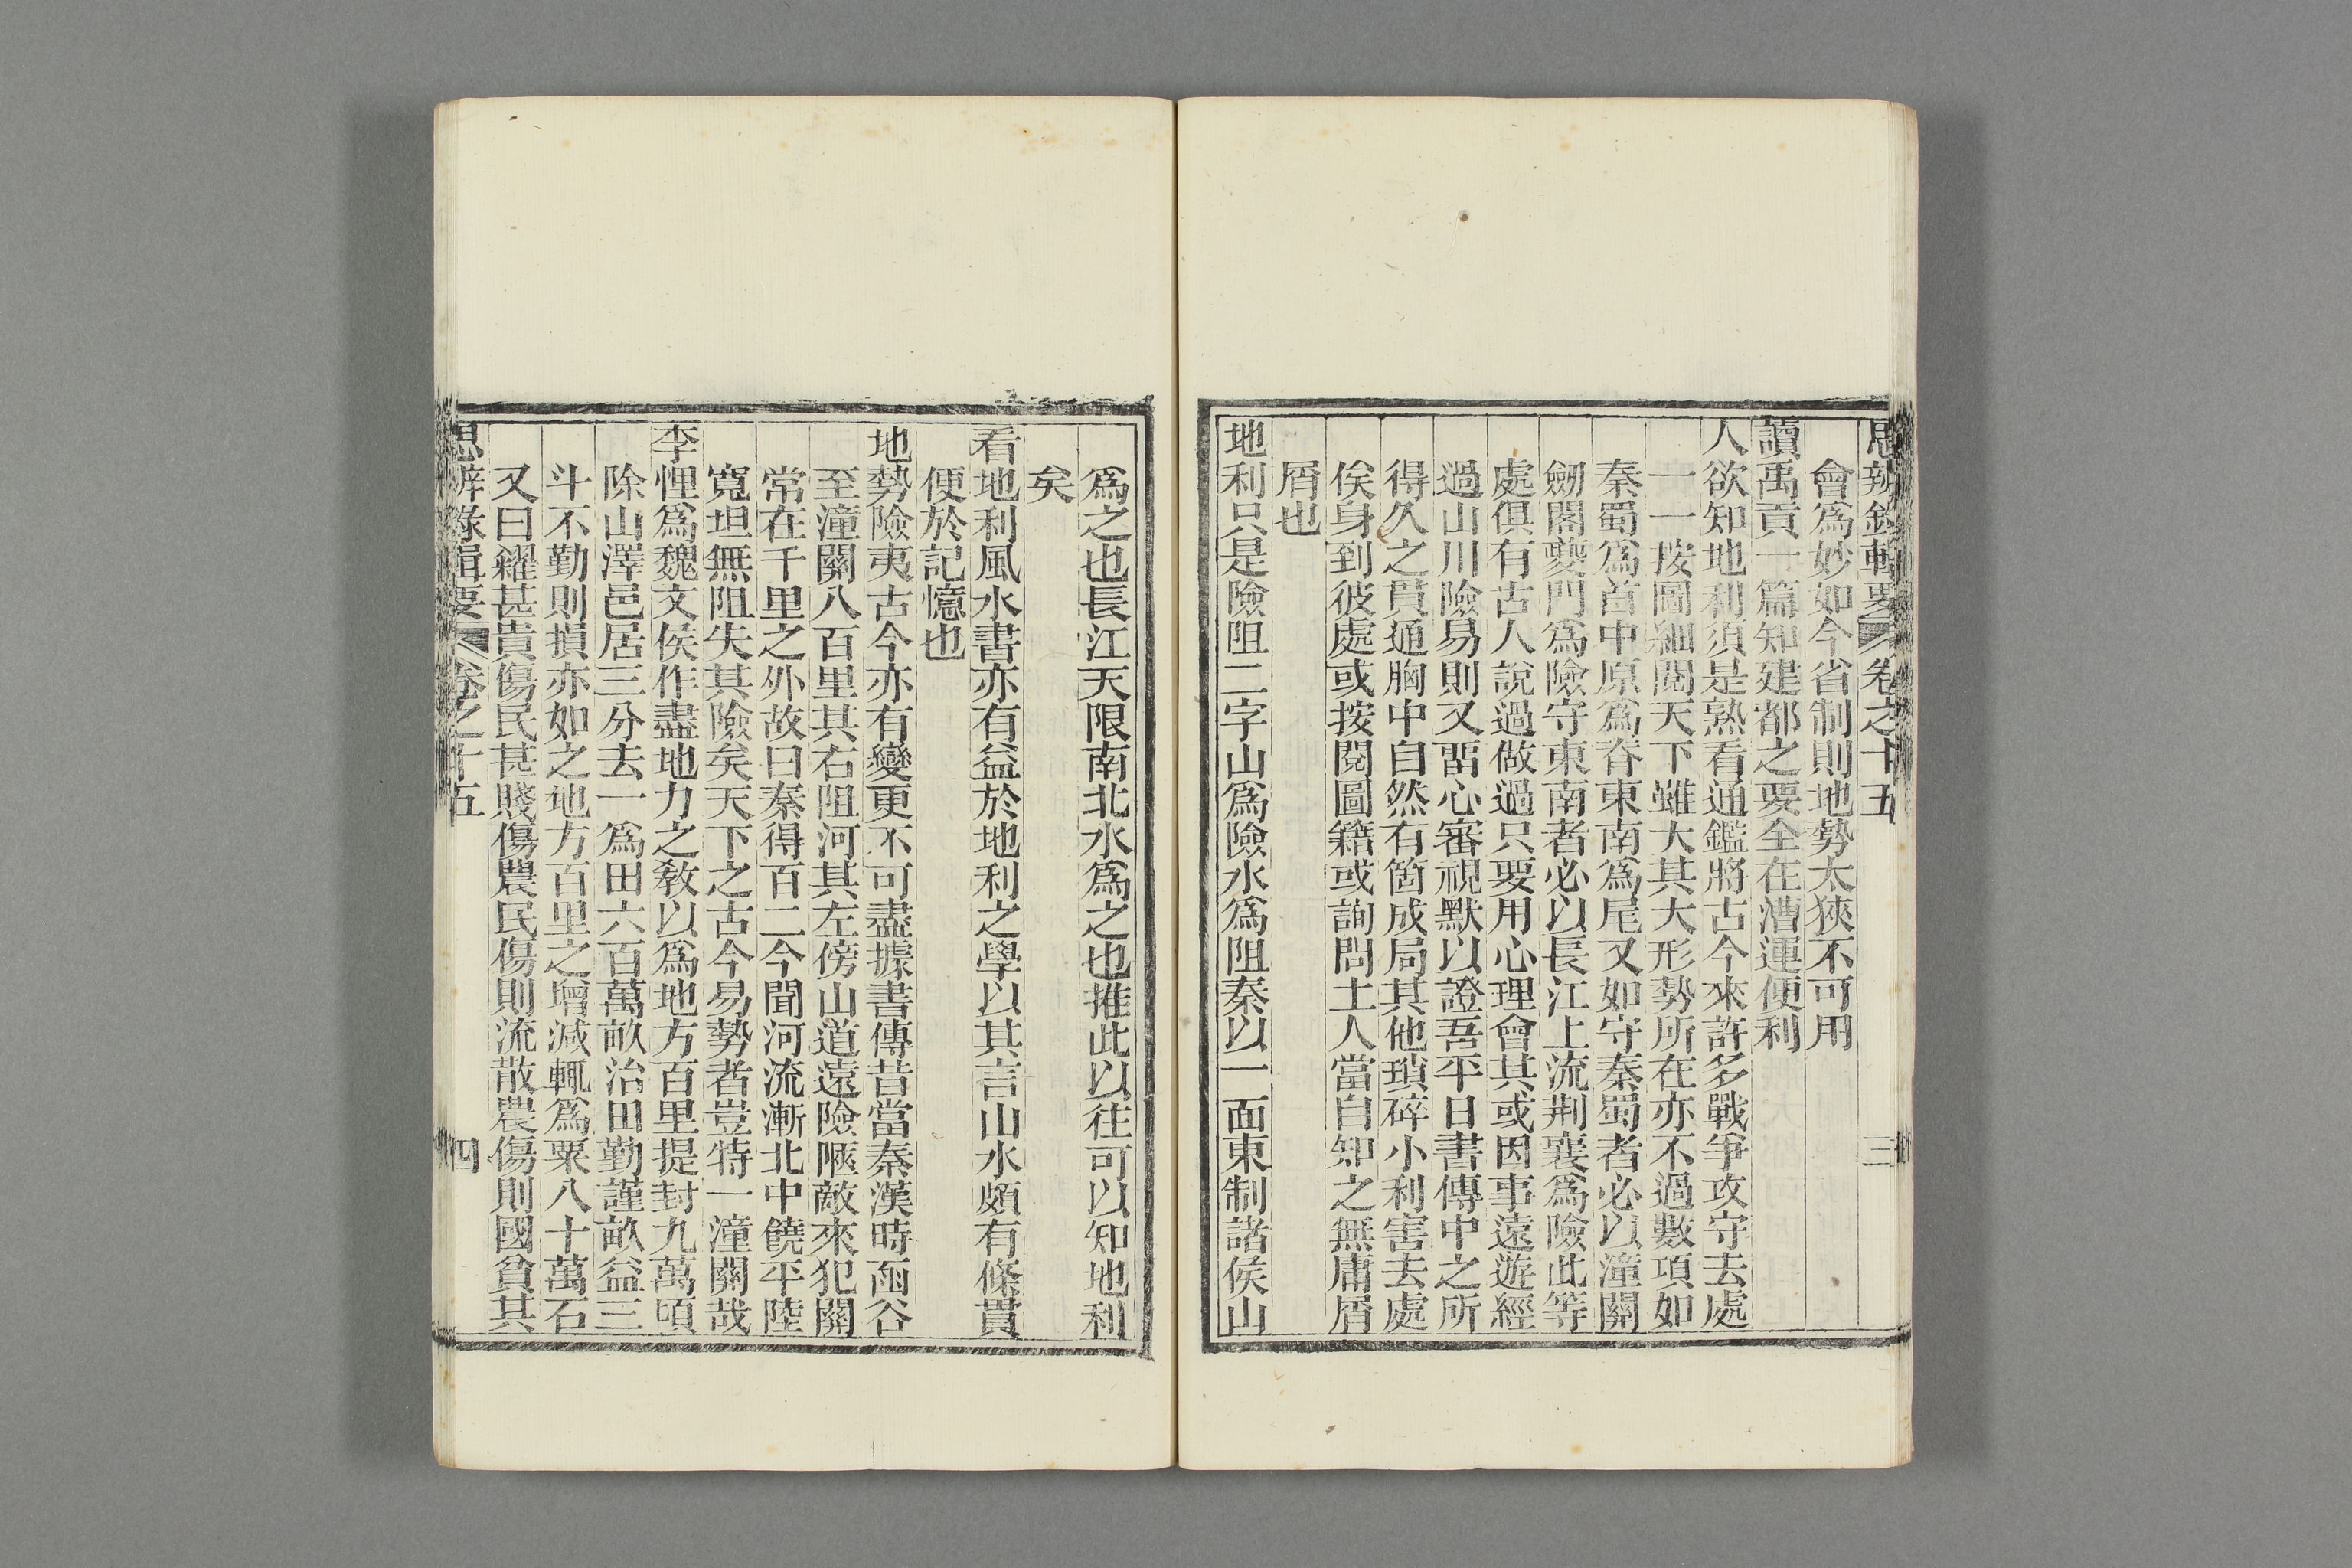 思辨錄輯要 卷之十五 三
會爲妙如今省制則地勢太狹不可用
讀禹貢一篇知建都之要全在漕運便利
人欲知地利須是熟看通鑑將古今來許多戰爭攻守去處
一一按圖細閱天下雖大其大形勢所在亦不過數項如
秦蜀爲首中原爲脊東南爲尾又如守秦蜀者必以潼關
劒閣夔門爲險守東南者必以長江上流荆襄爲險此等
處俱有古人說過做過只要用心理會其或因事遠遊經
過山川險易則又畱心審視默以證吾平日書傳中之所
得久之貫通胸中自然有箇成局其他瑣碎小利害去處
俟身到彼處或按閱圖籍或詢問土人當自知之無庸屑
屑也
地利只是險阻二字山爲險水爲阻秦以一面東制諸侯山
爲之也長江天限南北水爲之也推此以往可以知地利
矣
看地利風水書亦有益於地利之學以其言山水頗有條貫
便於記憶也
地勢險夷古今亦有變更不可盡據書傳昔當秦漢時函谷
至潼關八百里其右阻河其左傍山道遠險陿敵來犯關
常在千里之外故曰秦得百二今聞河流漸北中饒平陸
寬坦無阻失其險矣天下之古今易勢者豈特一潼關哉
李悝爲魏文侯作盡地力之教以爲地方百里提封九萬頃
除山澤邑居三分去一爲田六百萬畝治田勤謹畝益三
斗不勤則損亦如之地方百里之增減輒爲粟八十萬石
又曰糴甚貴傷民甚賤傷農民傷則流散農傷則國貧其
思辨錄輯要 卷之十五 四